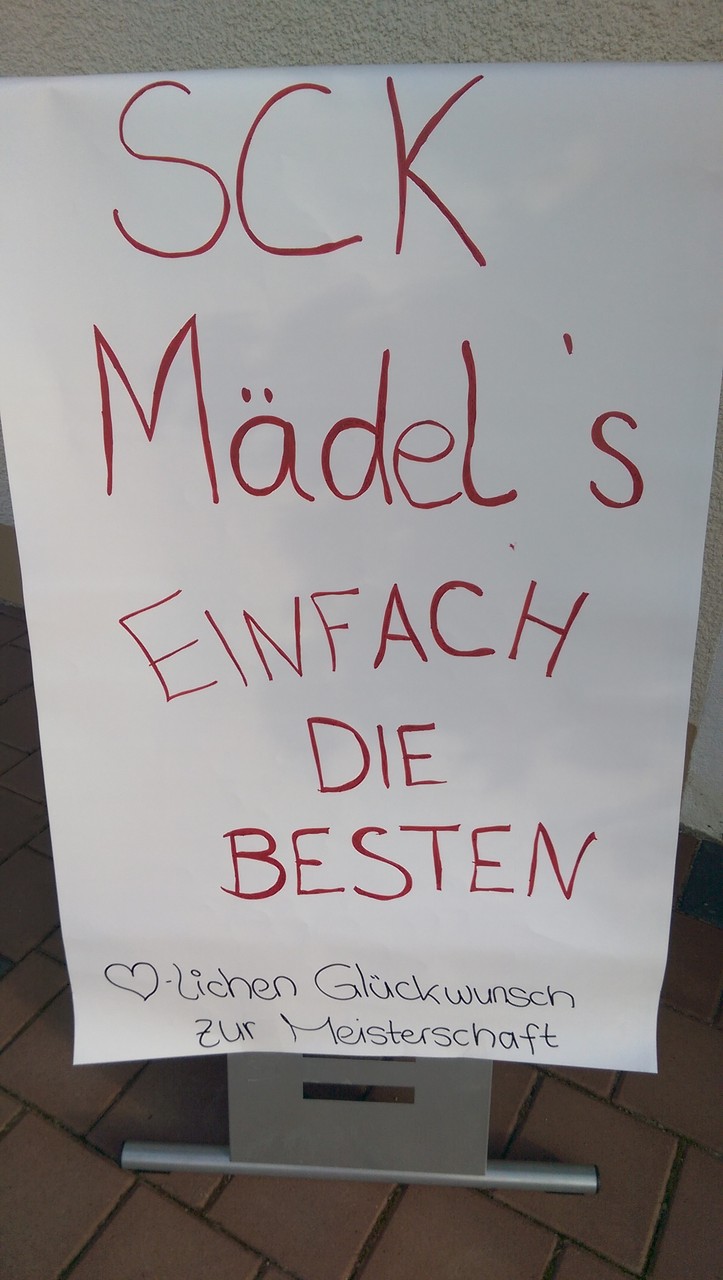 SCK
Mädel's
EINFACH
DIE
BESTEN
♡-lichen Glückwunsch
zur Meisterschaft